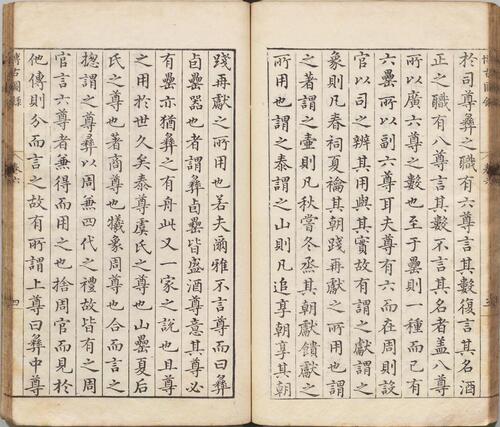 於司尊彝之職有六尊言其數復言其名酒
正之職有八尊言其數不言其名者蓋八尊
所以廣六尊之數也至于罍則一種而已有
六罍所以副六尊耳夫尊有六而在周則設
官以司之辨其用與其實故有謂之獻謂之
象則凡春祠夏禴其朝踐再獻之所用也謂
之著謂之壷則凡秋嘗冬烝其朝獻饋獻之
所用也謂之泰謂之山則凡追享朝享其朝
踐再獻之所用也若夫爾雅不言尊而曰彝
卣罍器也者謂彝卣罍皆盛酒尊意其尊必
有罍亦猶彝之有舟此又一家之說也且尊
之用於世久矣泰尊虞氏之尊也山罍夏后
氏之尊也著商尊也犧象周尊也合而言之
揔謂之尊彝以周兼四代之禮故皆有之周
官言六尊者兼得而用之也捨周官而見於
他傳則分而言之故有所謂上尊曰彝中尊
博古圖錄
卷六
四